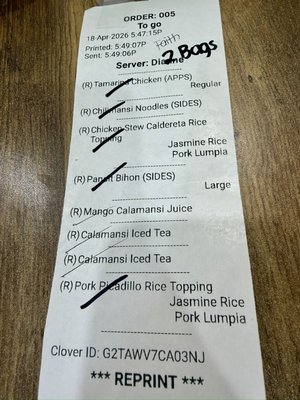 ORDER: 005
To go
18-Apr-2026 5:47:15P
Faith
Printed: 5:49:07P
2 Bags
Sent: 5:49:06P
Server: Dianne
(R) Tamarind Chicken (APPS)
Regular
(R) Chilimansi Noodles (SIDES)
(R) Chicken Stew Caldereta Rice
Topping
Jasmine Rice
Pork Lumpia
(R) Pancit Bihon (SIDES)
Large
(R) Mango Calamansi Juice
(R) Calamansi Iced Tea
(R) Calamansi Iced Tea
(R) Pork Picadillo Rice Topping
Jasmine Rice
Pork Lumpia
Clover ID: G2TAWV7CA03NJ
*** REPRINT ***